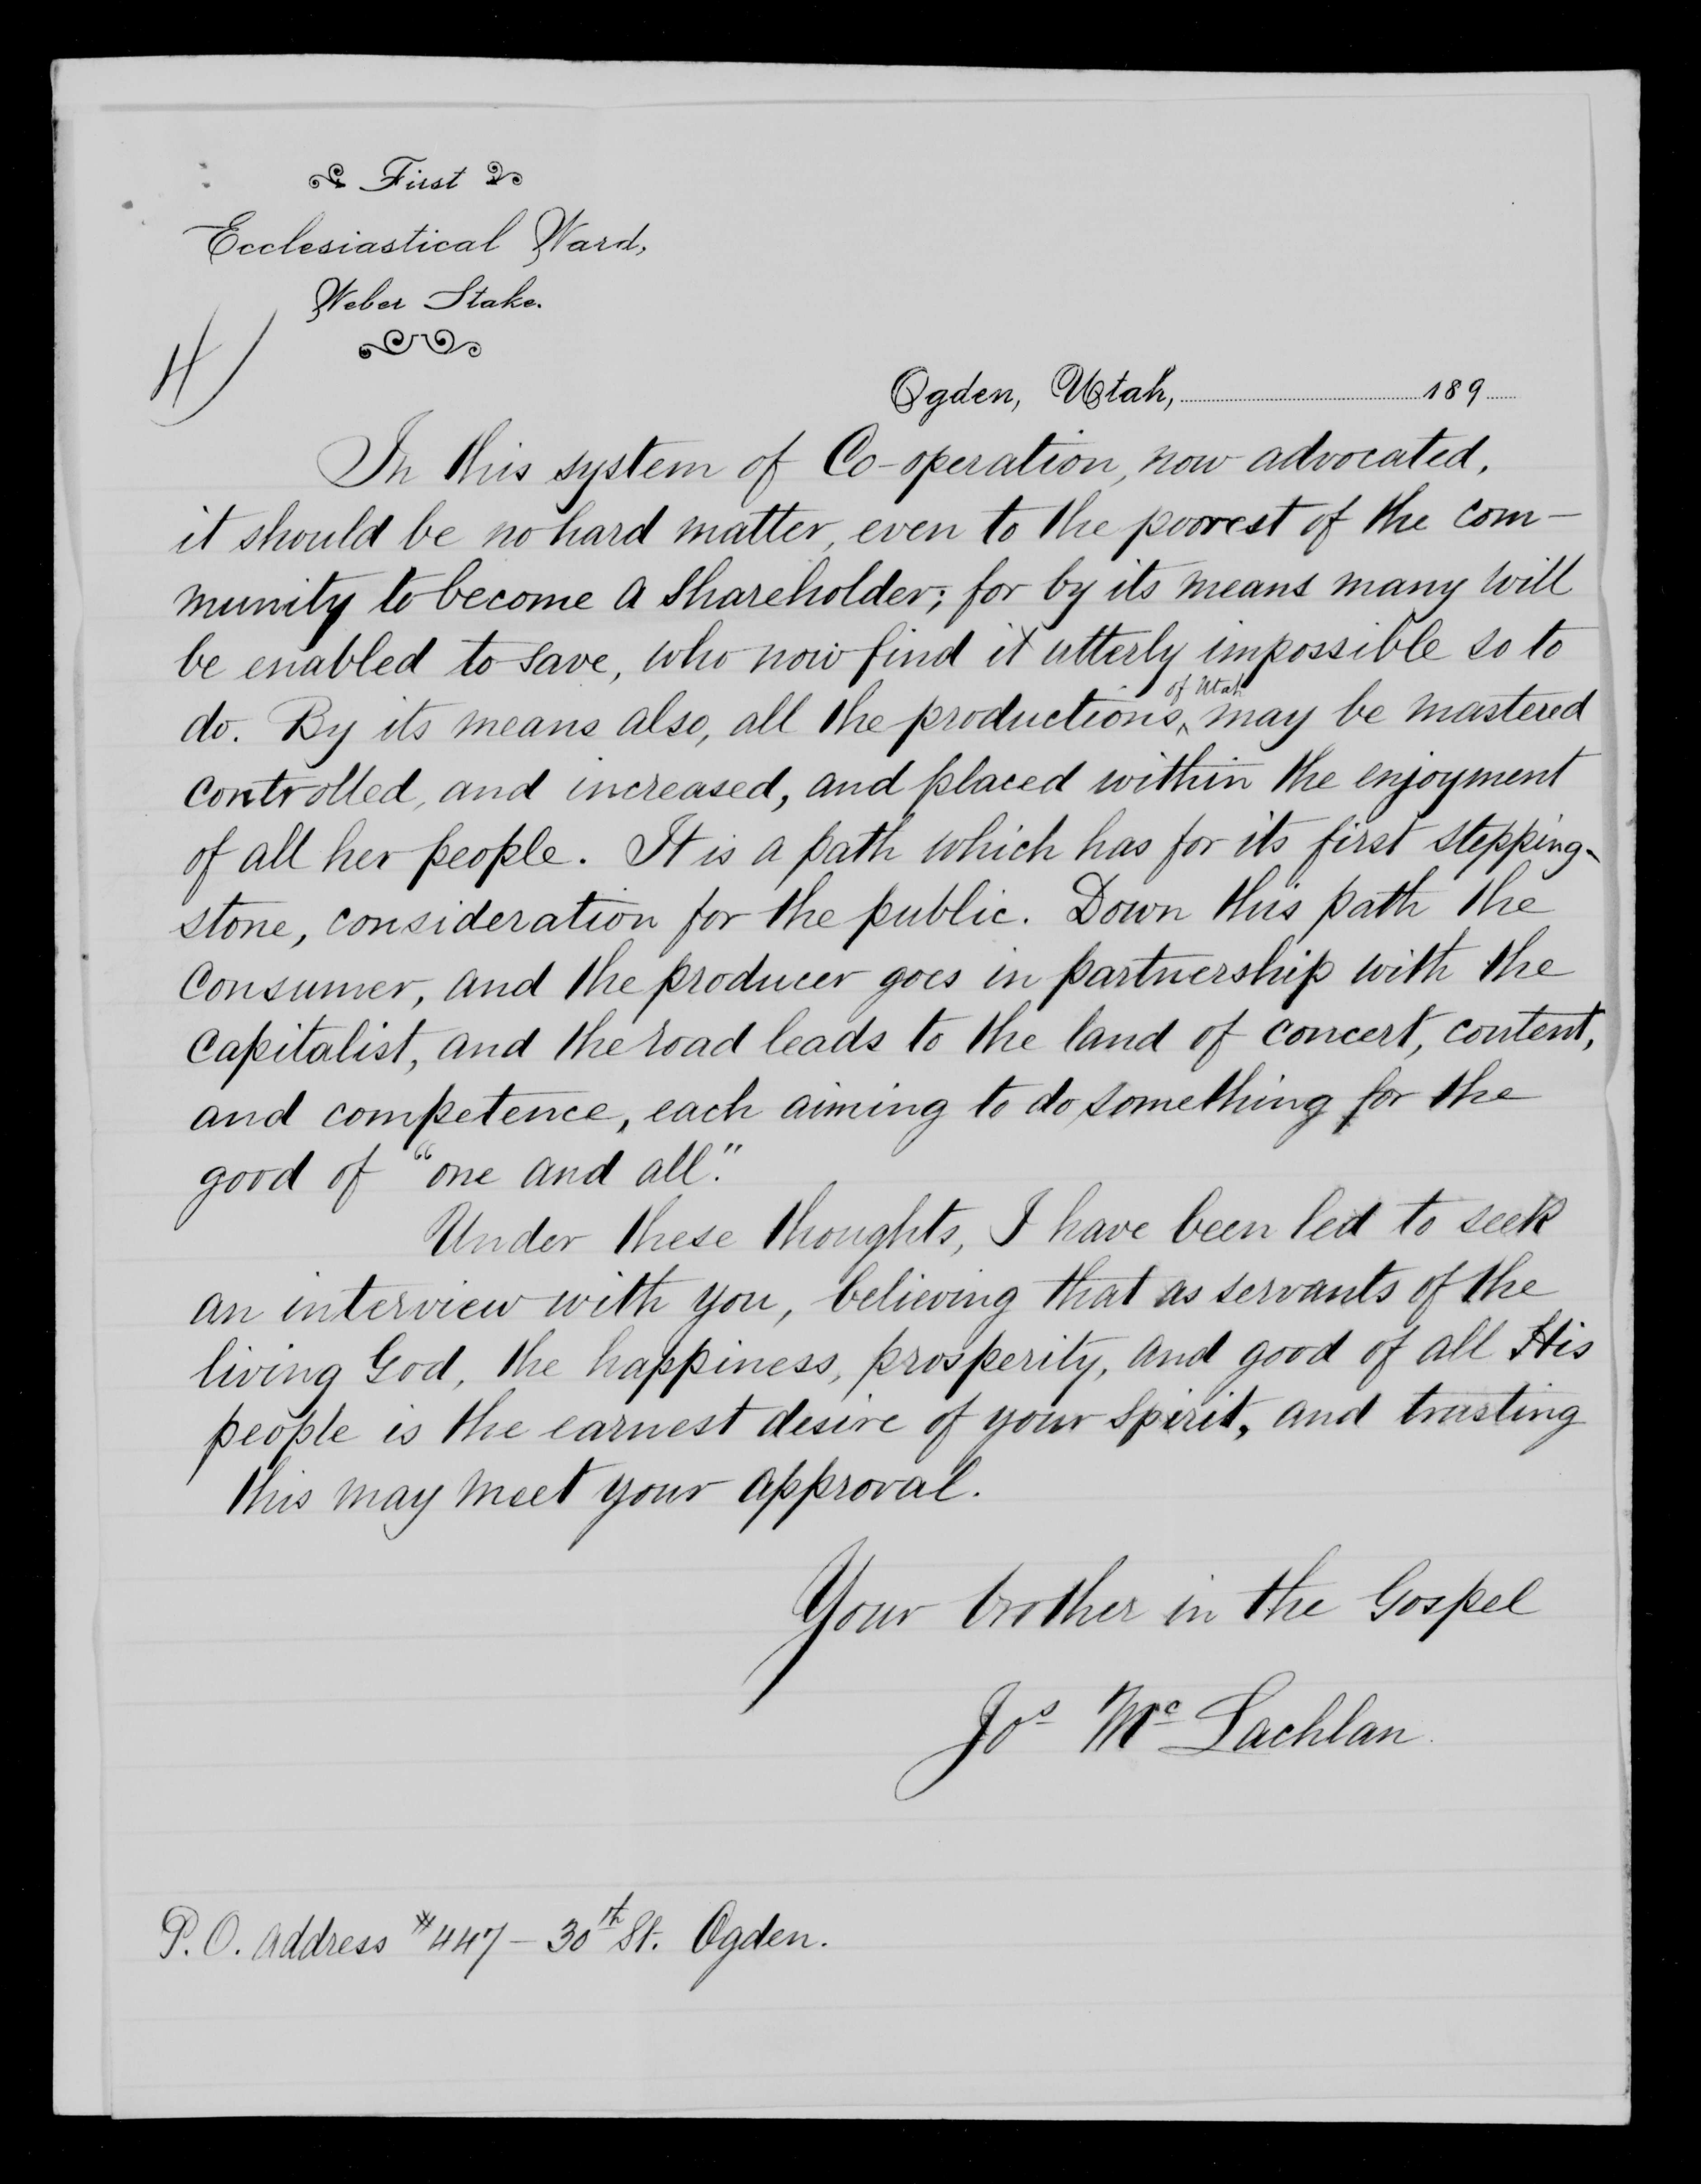 First
Ecclesiastical Ward,
Weber Stake.
4)
Ogden, Utah, 189
In this system of Co-operation, now advocated,
it should be no hard matter, even to the poorest of the com-
munity to become a shareholder; for by its means many will
be enabled to save, who now find it utterly impossible so to
do. By its means also, all the productions ^of Utah may be mastered
controlled, and increased, and placed within the enjoyment
of all her people. It is a path which has for its first stepping-
stone, consideration for the public. Down this path the
consumer, and the producer goes in partnership with the
capitalist, and the road leads to the land of concert, content,
and competence, each aiming to do something for the
good of "one and all."
Under these thoughts, I have been led to seek
an interview with you, believing that as servants of the
living God, the happiness, prosperity, and good of all His
people is the earnest desire of your spirit, and trusting
this may meet your approval.
Your brother in the Gospel
Jos Mc Lachlan.
P.O. address #447 - 30th St. Ogden.